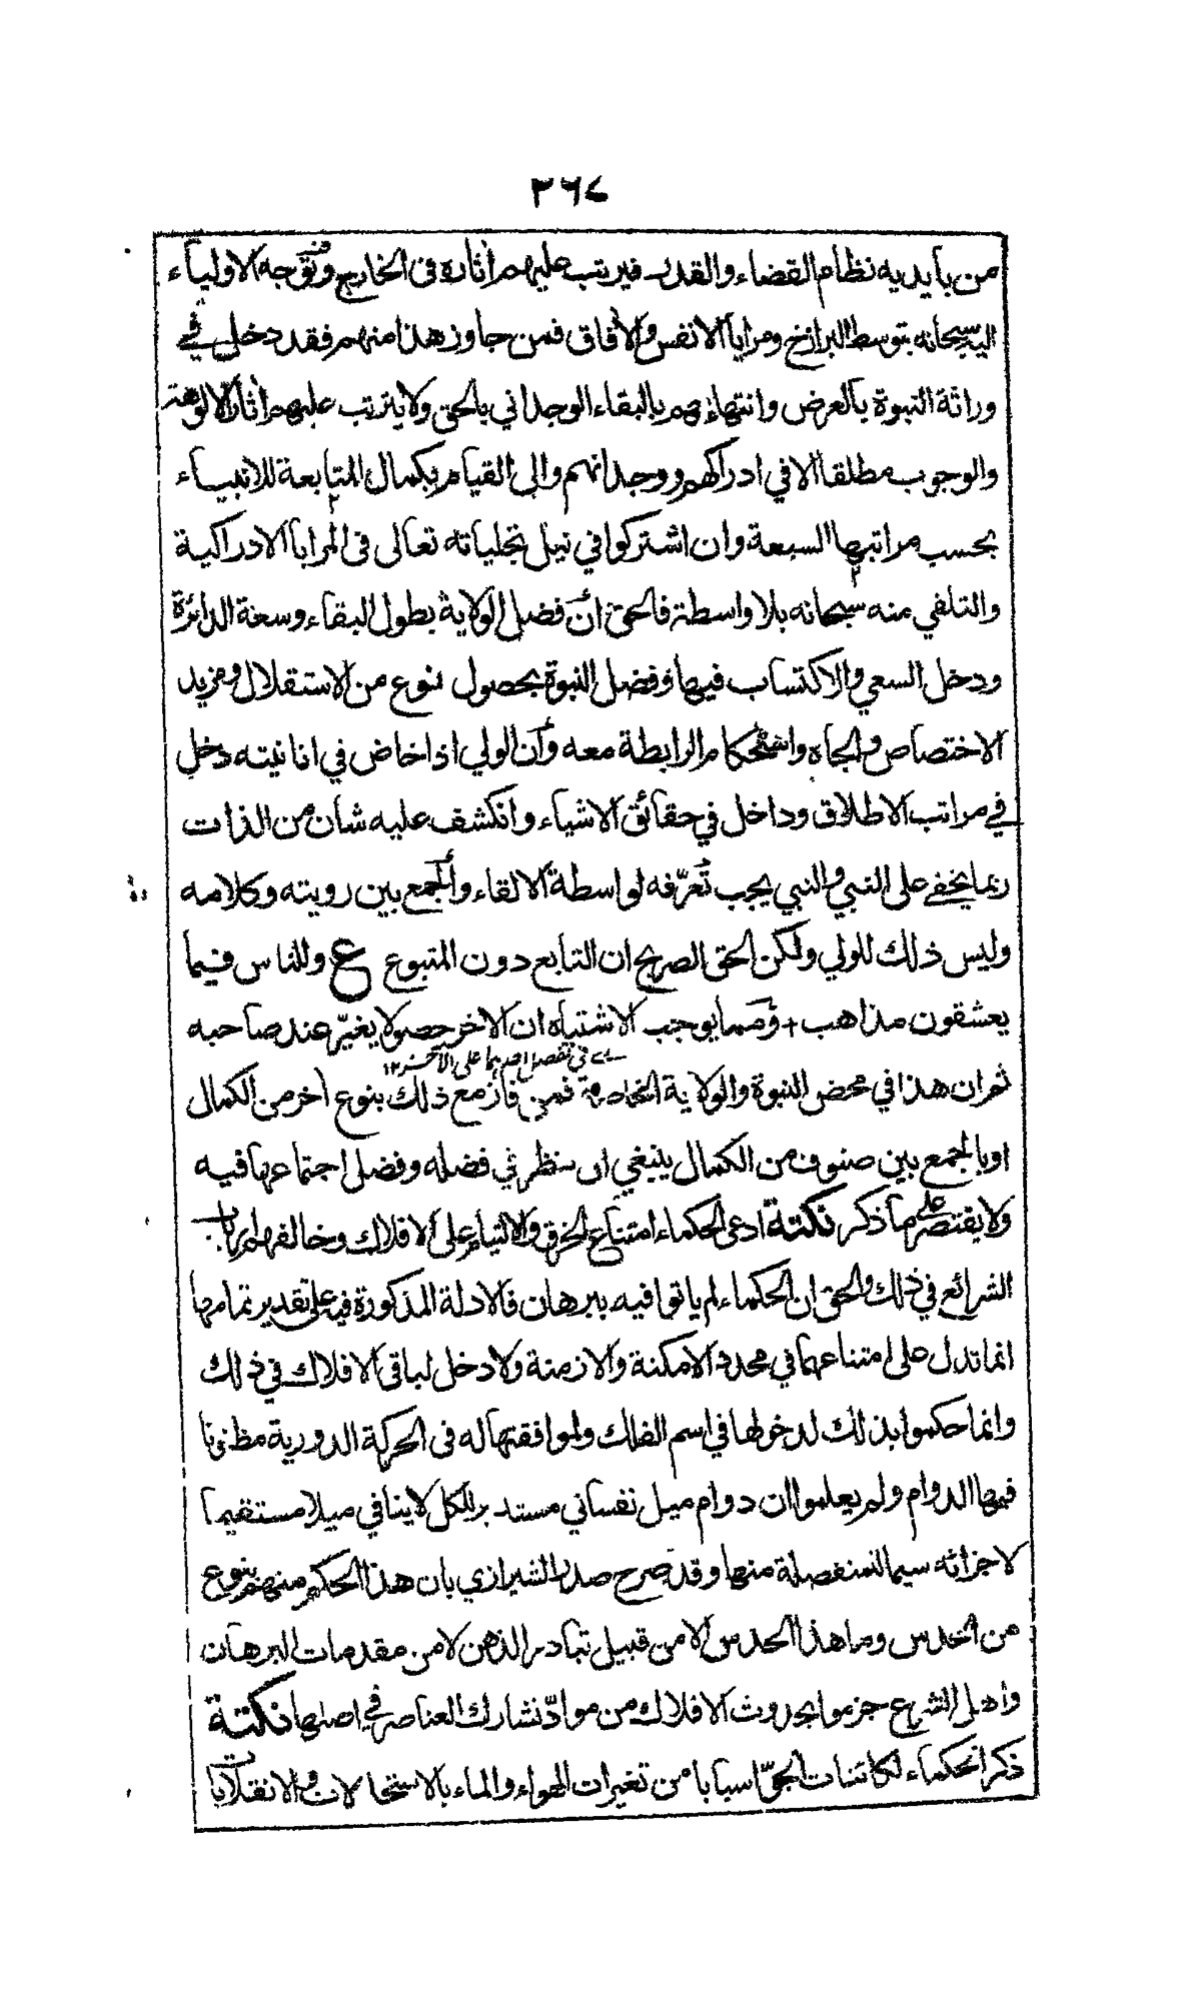 ٣٦٧
من بأيديه نظام القضاء والقدر فيرتب عليهم أثاره فى الخارج وتوجه الاولياء
اليه سبحانه بتوسط البرازخ ومرايا الانفس والأفاق فمن جاوز هذا منهم فقد دخل في
وراثة النبوة بالعرض وانتهاؤهم بالبقاء الوجداني بالحق ولا يترتب عليهم أثار الالوهية
والوجوب مطلقا الا في ادراكهم ووجدانهم والى القيام بكمال المتابعة للانبياء
بحسب مراتبها السبعة وان اشتركوا في نيل تجلياته تعالى فى المرايا الادراكية
والتلقي منه سبحانه بلا واسطة فالحق أنّ فضل الولاية بطول البقاء وسعة الدائرة
ودخل السعي والاكتساب فيها وفضل النبوة بحصول نوع من الاستقلال ومزيد
الاختصاص والجاه واستحكام الرابطة معه وأن الولي اذا خاض في انانيته دخل
في مراتب الاطلاق وداخل في حقائق الاشياء وانكشف عليه شأن من الذات
ربما يخفى على النبي والنبي يجب تعرّفه لواسطة الالقاء والجمع بين رويته وكلامه
وليس ذلك للولي ولكن الحق الصريح ان التابع دون المتبوع ع وللناس فيما
يعشقون مذاهب + ومما يوجب الاشتباه ان الاخر حصولا يغيّر عند صاحبه
اے في تفضيل احدهما على الآخر ١٢
ثم ان هذا في محض النبوة والولاية الخاصة فمن فاز مع ذلك بنوع أخر من الكمال
او بالجمع بين صنوف من الكمال ينبغي ان ينظر في فضله وفضل اجتماعها فيه
ولا يقتصر على ما ذكر نكتة ادعى الحكماء امتناع الخرق والالتيام على الافلاك وخالفهم ارباب
الشرائع في ذلك والحق ان الحكماء لم ياتوا فيه ببرهان فالادلة المذكورة فيه على تقدير تمامها
انما تدل على امتناعهما في محدد الامكنة والازمنة ولا دخل لباقى الافلاك في ذلك
وانما حكموا بذلك لدخولها في اسم الفلك ولموافقتها له فى الحركة الدورية مظنونا
فيها الدوام ولم يعلموا ان دوام ميل نفساني مستدير للكل لا ينافي ميلا مستقيما
لاجزائه سيما المنفصلة منها وقد صرح صدر الشيرازي بان هذا الحكم منهم بنوع
من الحدس وما هذا الحدس الا من قبيل تبادر الذهن لا من مقدمات البرهان
واهل الشرع جزموا بحدوث الافلاك من موادّ تشارك العناصر في اصلها نكتة
ذكر الحكماء لكائنات الجوّ اسبابا من تغيرات الهواء والماء بالاستحالات والانقلابات